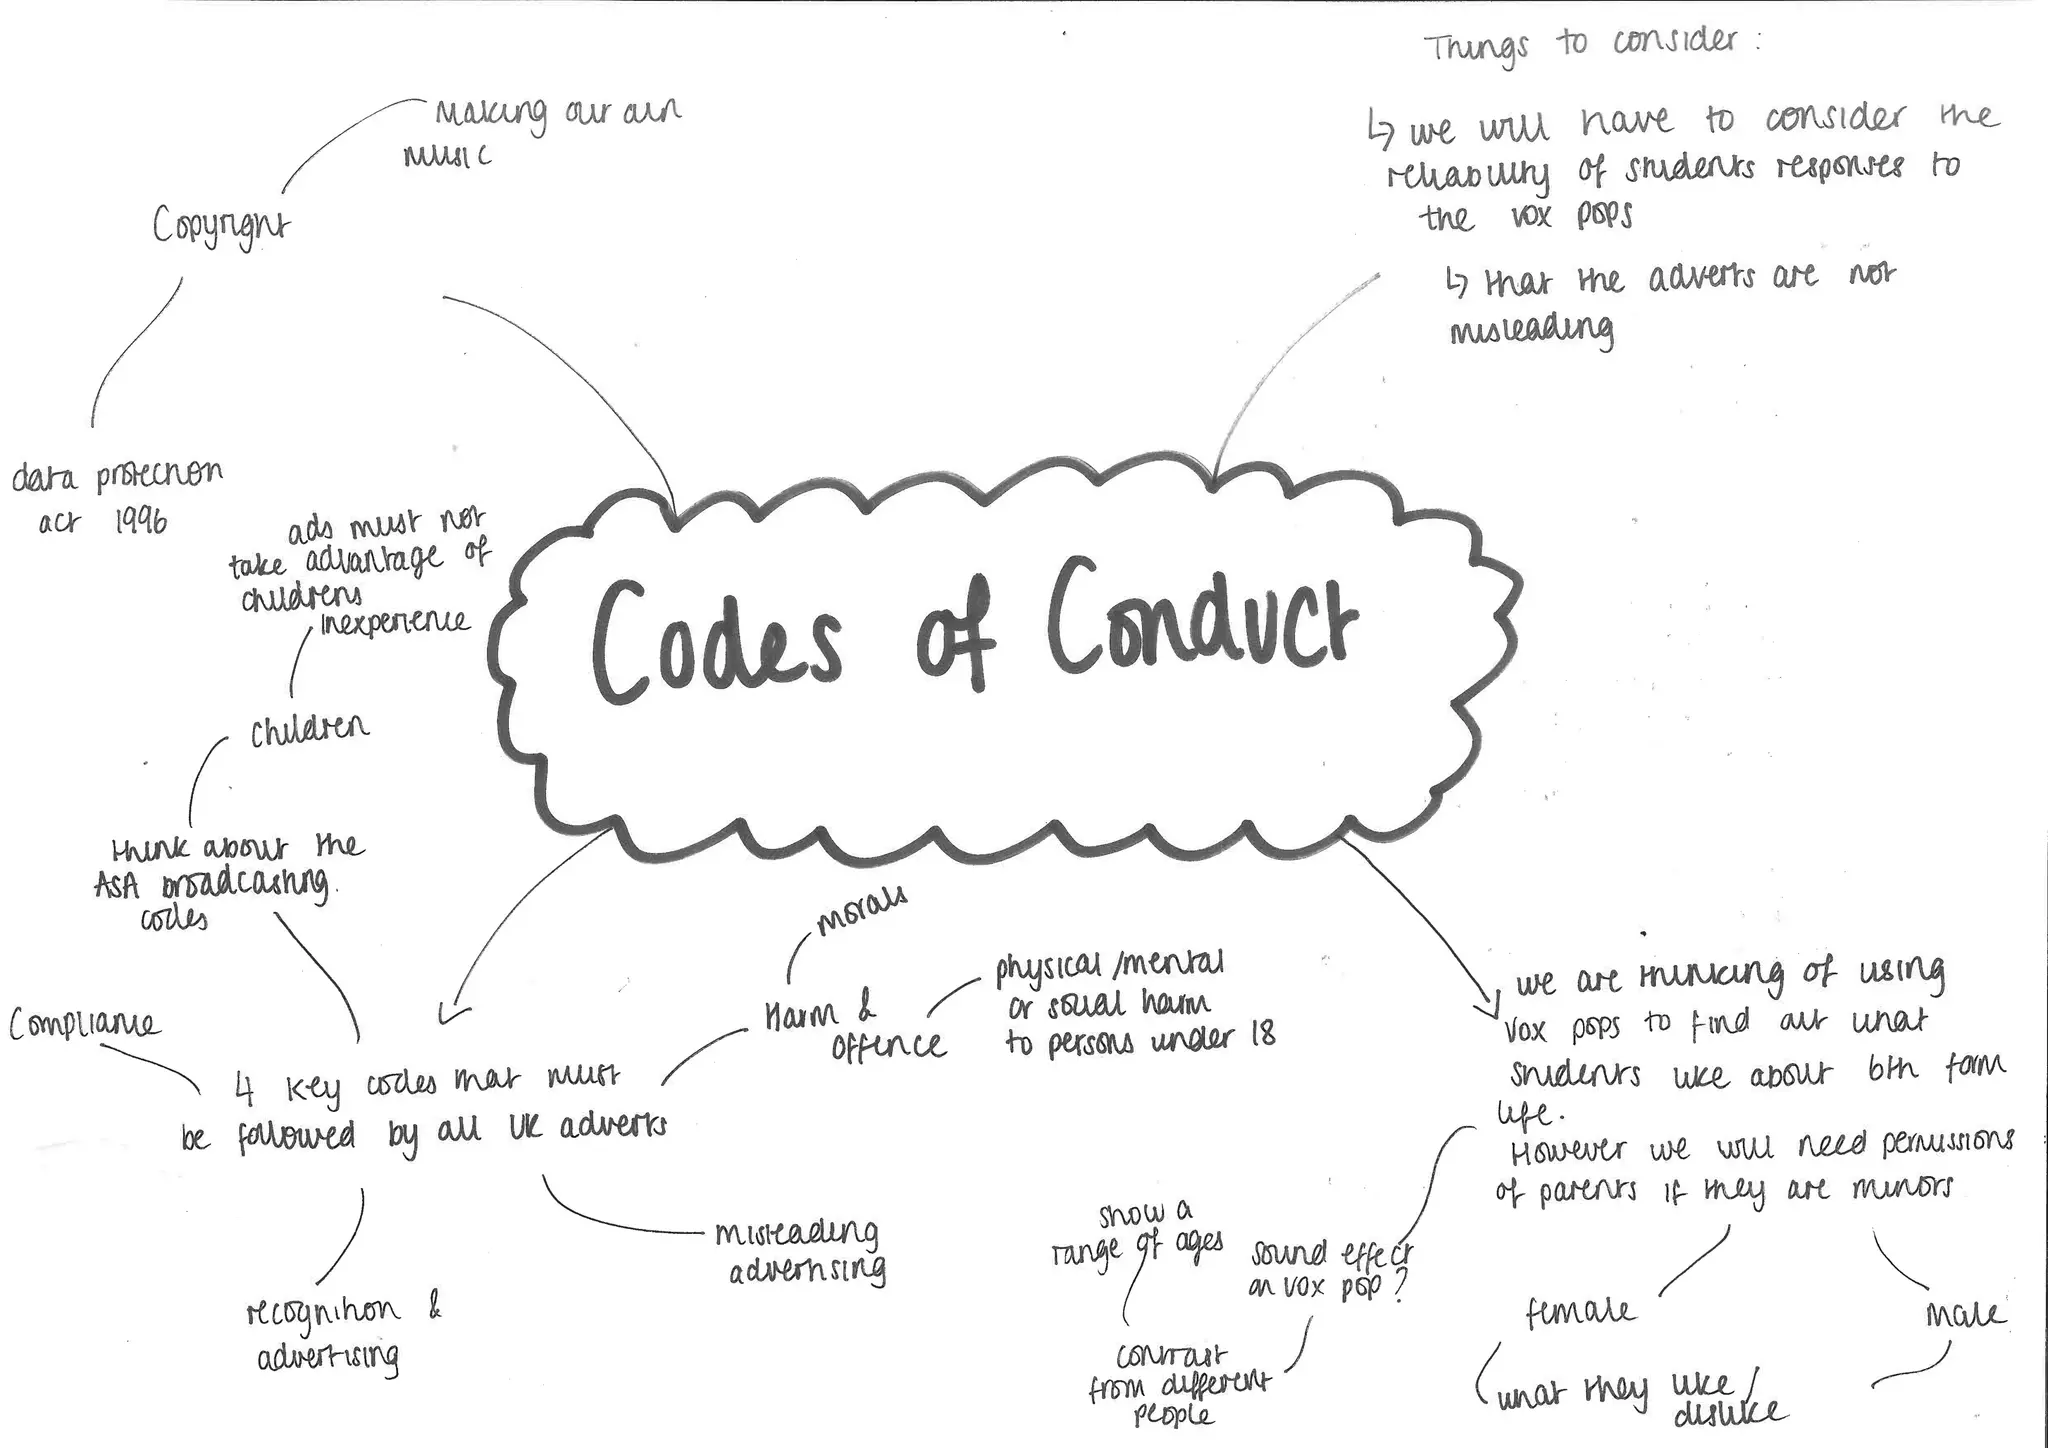 Things to consider :
↳ we will have to consider the
reliability of students responses to
the vox pops
↳ that the adverts are not
misleading
Making our own
music
Copyright
data protection
act 1996
ads must not
take advantage of
childrens
inexperience
children
think about the
ASA broadcasting.
codes
Codes of Conduct
Compliance
4 key codes that must
be followed by all UK adverts
morals
Harm &
offence
physical/mental
or social harm
to persons under 18
misleading
advertising
recognition &
advertising
we are thinking of using
vox pops to find out what
students like about 6th form
life.
However we will need permissions
of parents if they are minors
show a
range of ages
sound effect
on vox pop?
contrast
from different
people
female
male
what they like/
dislike